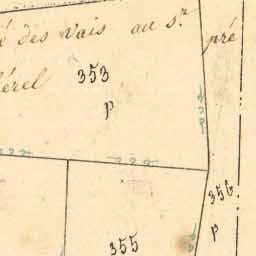 des vais au sr.
pré
érel
353
p
356
p
355